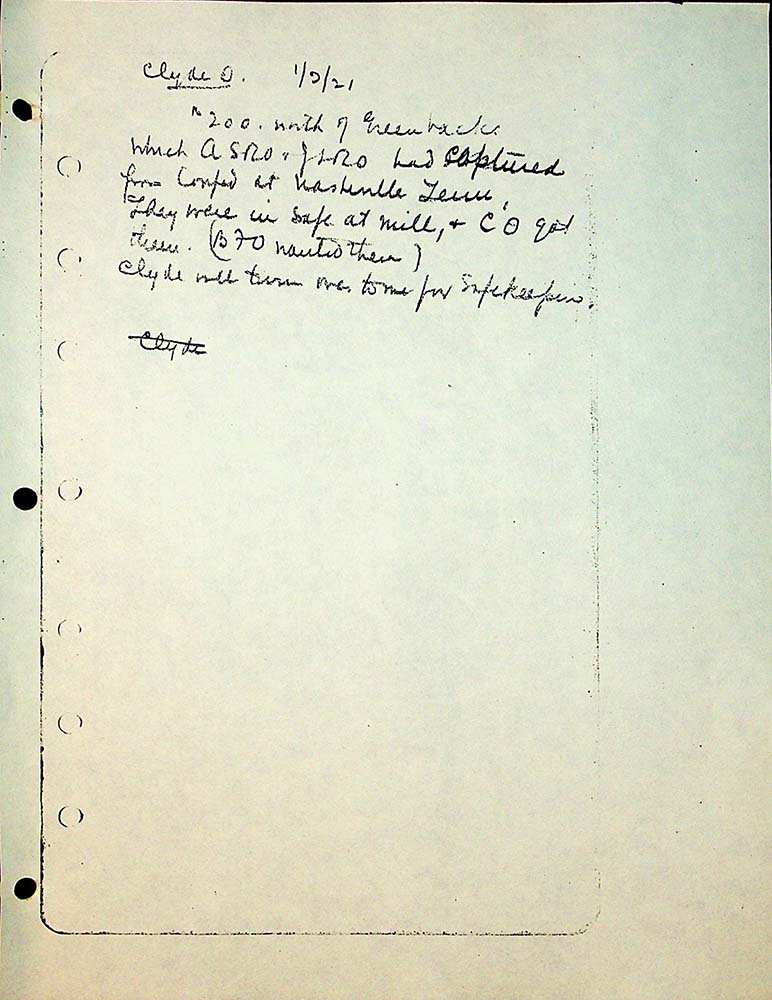 Clyde O. 1/3/21
200. worth of Greenbacks
which A SRO + JLRO had captured
from Confed at Nashville Tenn.
They were in safe at mill, + C O got
them. (B F O wanted them)
Clyde will turn over to me for Safekeeping.
Clyde